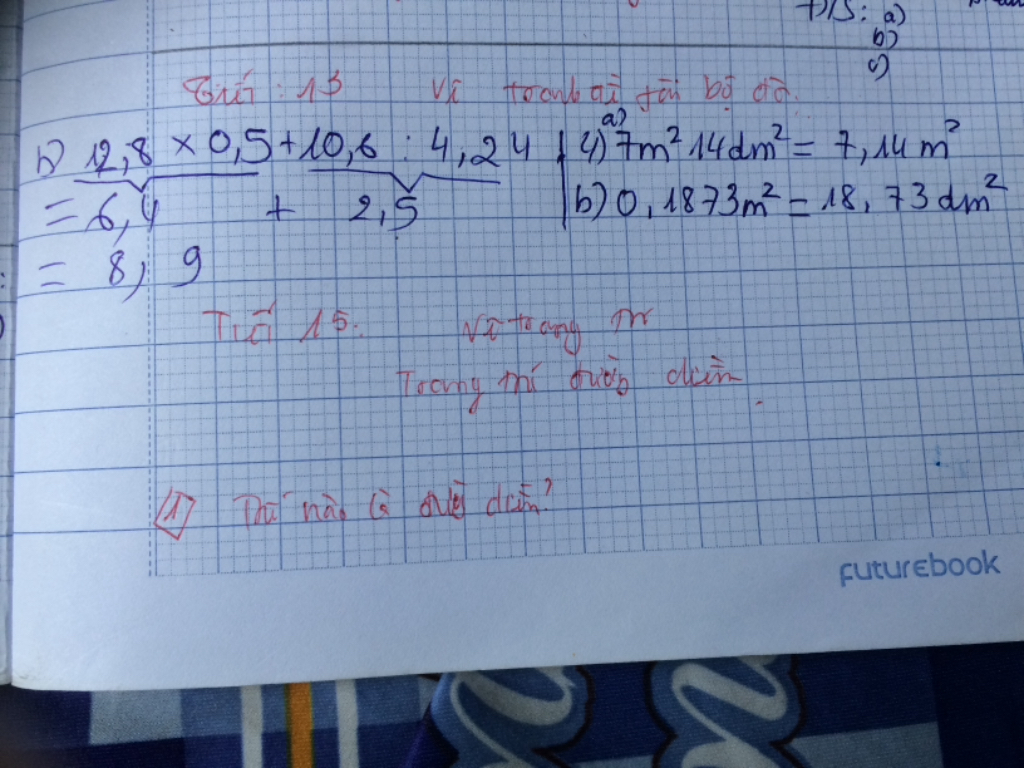 ĐS: a)
b)
c)
Tiết: 13
b) 12,8 × 0,5 + 10,6 : 4,24
= 6,4 + 2,5
= 8,9
4) a) 7m² 14dm² = 7,14m²
b) 0,1873m² = 18,73dm²
Tiết 15: Vẽ trang trí
Trang trí đường diềm
1) Thế nào là đường diềm?
futurebook